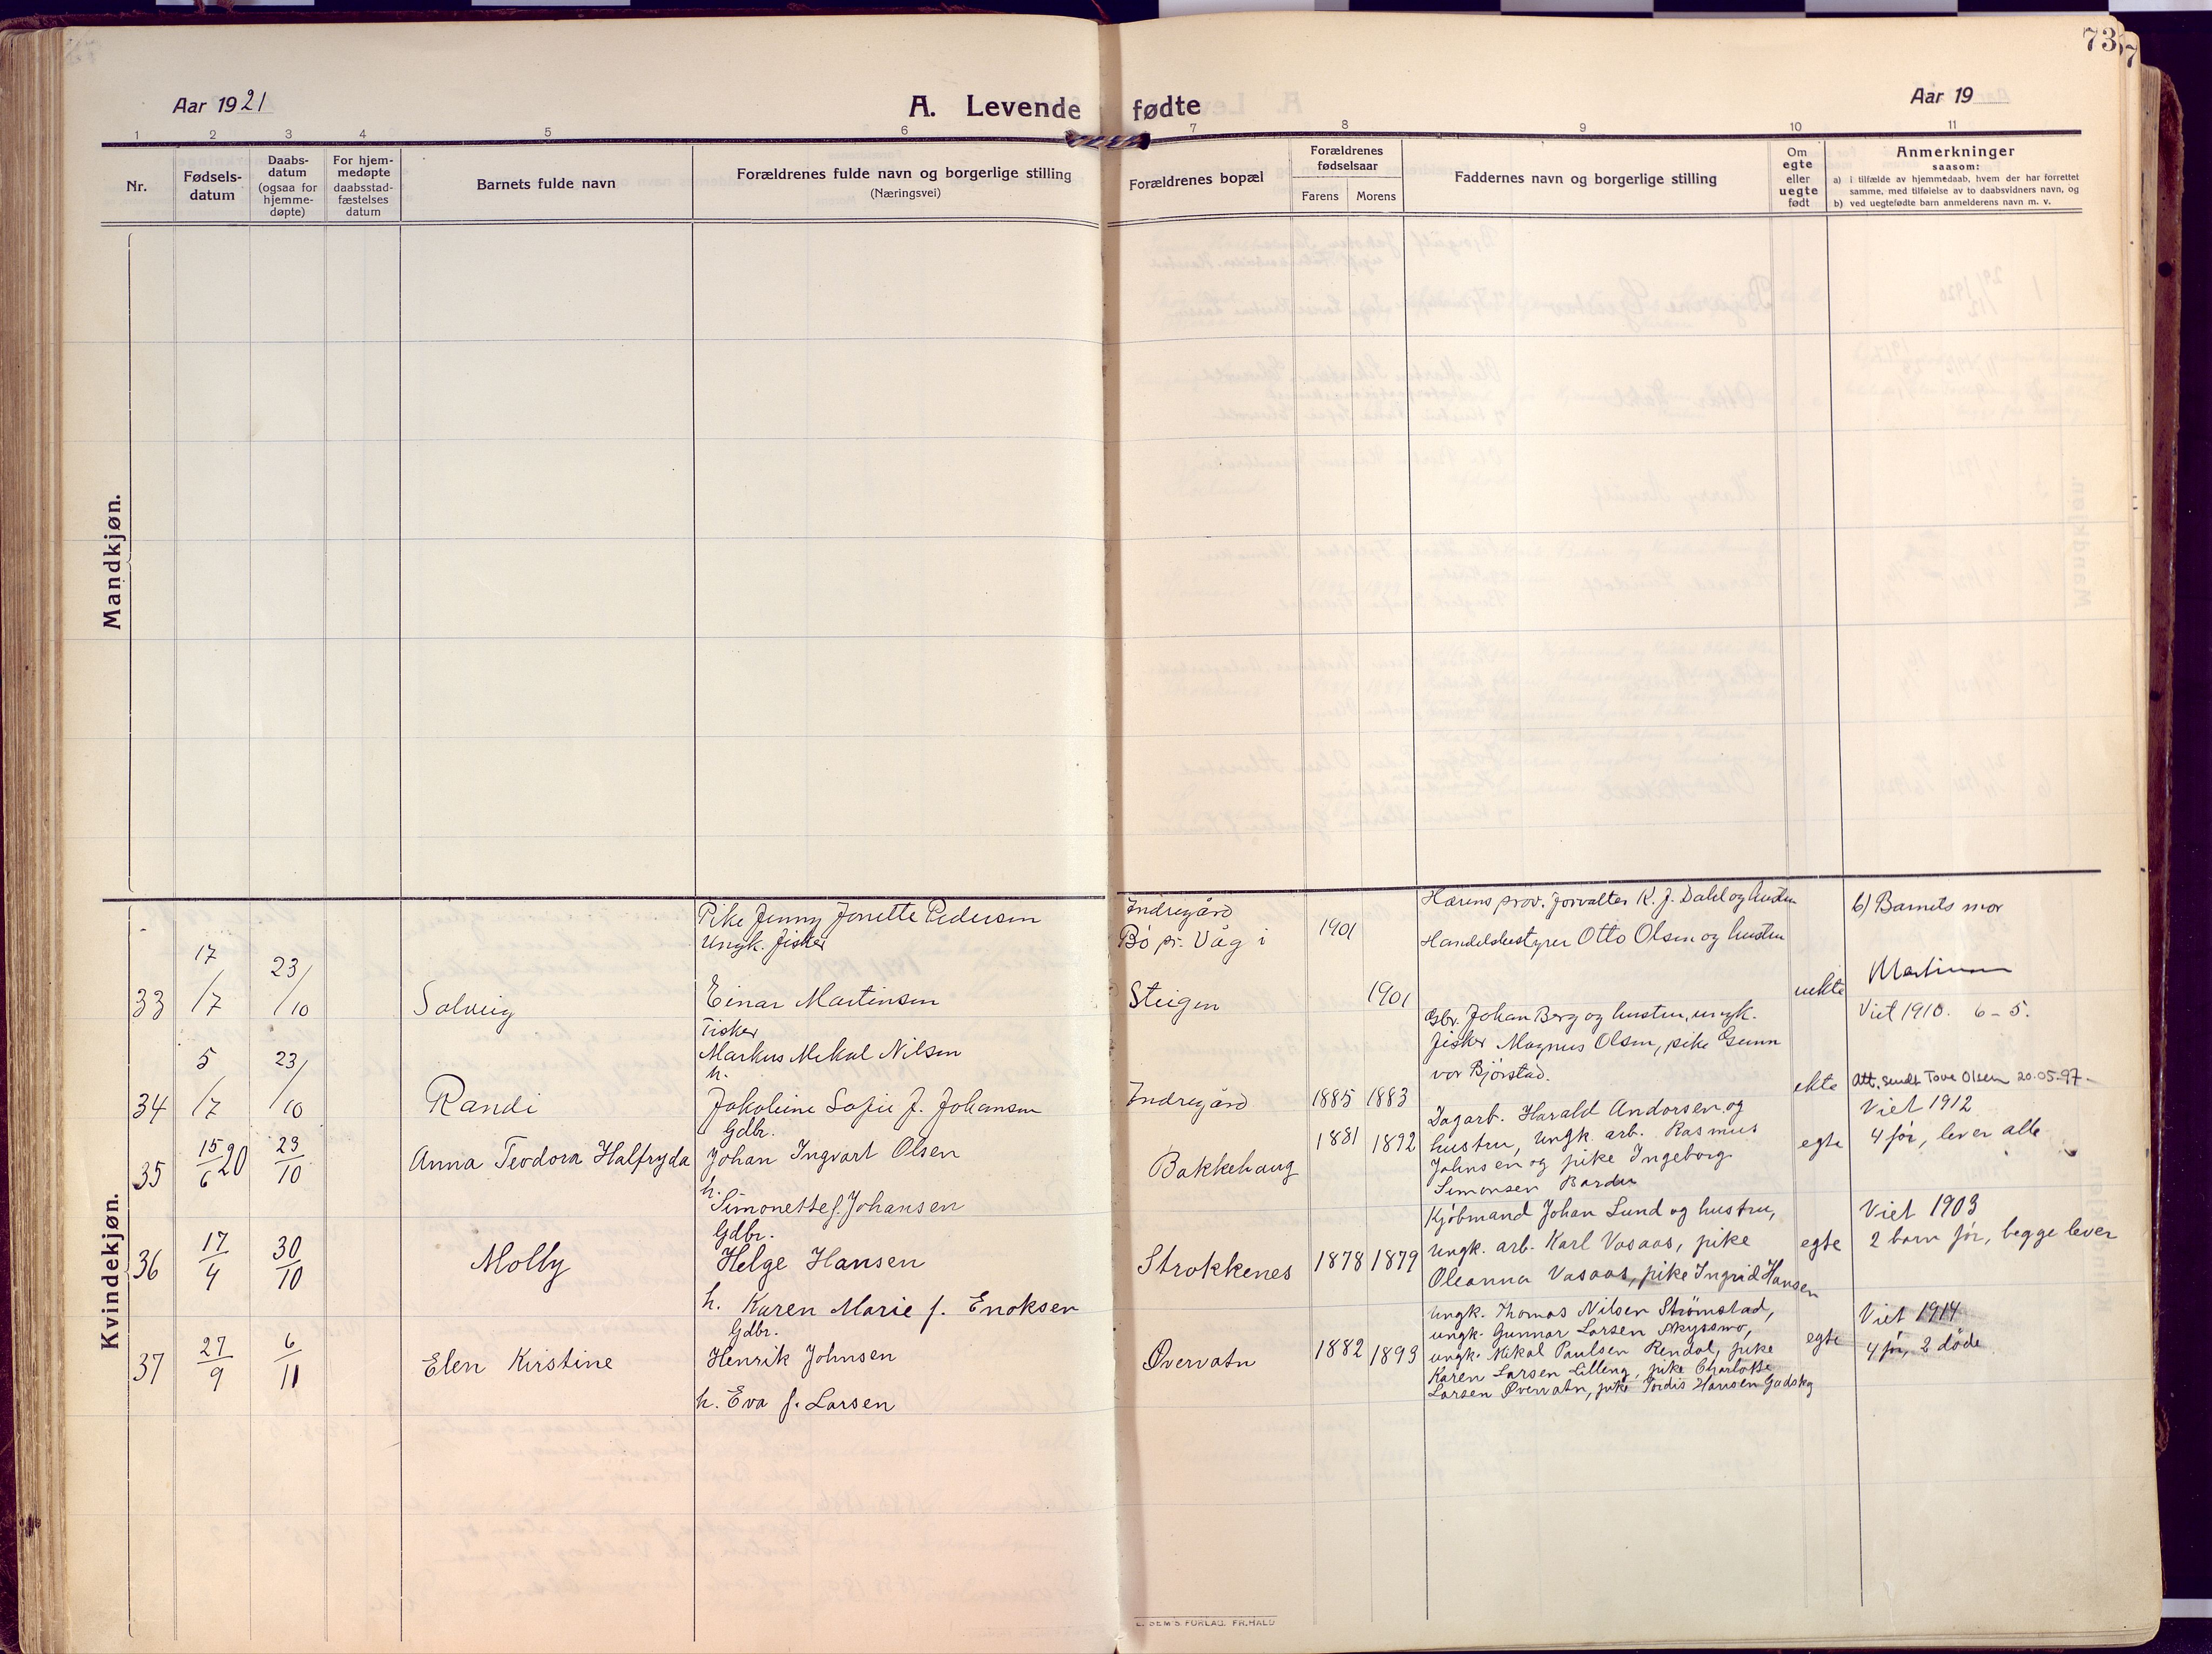 73
Aar 1921
A. Levende fødte
Aar 19
1 2 3 4 5 6 7 8 9 10 11
Nr.
Fødsels-
datum
Daabs-
datum
(ogsaa for
hjemme-
døpte)
For hjem-
medøpte
daabsstad-
fæstelses
datum
Barnets fulde navn
Forældrenes fulde navn og borgerlige stilling
(Næringsvei)
Forældrenes bopæl
Forældrenes
fødselsaar
Farens Morens
Faddernes navn og borgerlige stilling
Om
egte
eller
uegte
født
Anmerkninger
saasom:
a) i tilfælde av hjemmedaab, hvem der har forrettet
samme, med tilføielse av to daabsvidners navn, og
b) ved uegtefødte barn anmelderens navn m. v.
Mandkjøn.
Kvindekjøn.
33
17/7
23/10
Solveig
Pike Jenny Jonette Pedersen
Ungk. fisker
Einar Martinsen
Indregård
Bø pr. Våg i
Steigen
1901
1901
Hærens prov. forvalter K. J. Dahl og hustru
Handelsbestyrer Otto Olsen og hustru
uekte
b) Barnets mor
34
5/7
23/10
Randi
Fisker
Markus Mekal Nilsen
h.
Jakobine Sofie f. Johansen
Indregård
1885 1883
Gbr. Johan Berg og hustru, ungk.
fisker Magnus Olsen, pike Gunn
vor Bjørstad.
ekte
Viet 1910. 6 - 5.
Att. sendt Tove Olsen 20.05.97.
35
15/6 20
23/10
Anna Teodora Halfryda
Gdbr.
Johan Ingvart Olsen
h.
Simonette f. Johansen
Bakkehaug
1881 1892
Dagarb. Harald Andorsen og
hustru, ungk. arb. Rasmus
Johnsen og pike Ingeborg
Simonsen Bardu
egte
Viet 1912
4 før, lever alle
36
17/4
30/10
Molly
Gdbr.
Helge Hansen
h. Karen Marie f. Enoksen
Strokkenes
1878 1879
Kjøbmand Johan Lund og hustru,
ungk. arb. Karl Vasaas, pike
Oleanna Vasaas, pike Ingrid Hansen
egte
Viet 1903
2 barn før, begge lever
37
27/9
6/11
Elen Kirstine
Gdbr.
Henrik Johnsen
h. Eva f. Larsen
Øvervatn
1882 1893
ungk. Thomas Nilsen Strømstad,
ungk. Gunnar Larsen
ungk. Mikal Paulsen Rendal, pike
Karen Larsen Lilleng, pike Charlotte
Larsen Øvervatn, pike Jordis Hansen
egte
Viet 1914
4 før, 2 døde
E. SEM'S FORLAG. FR.HALD